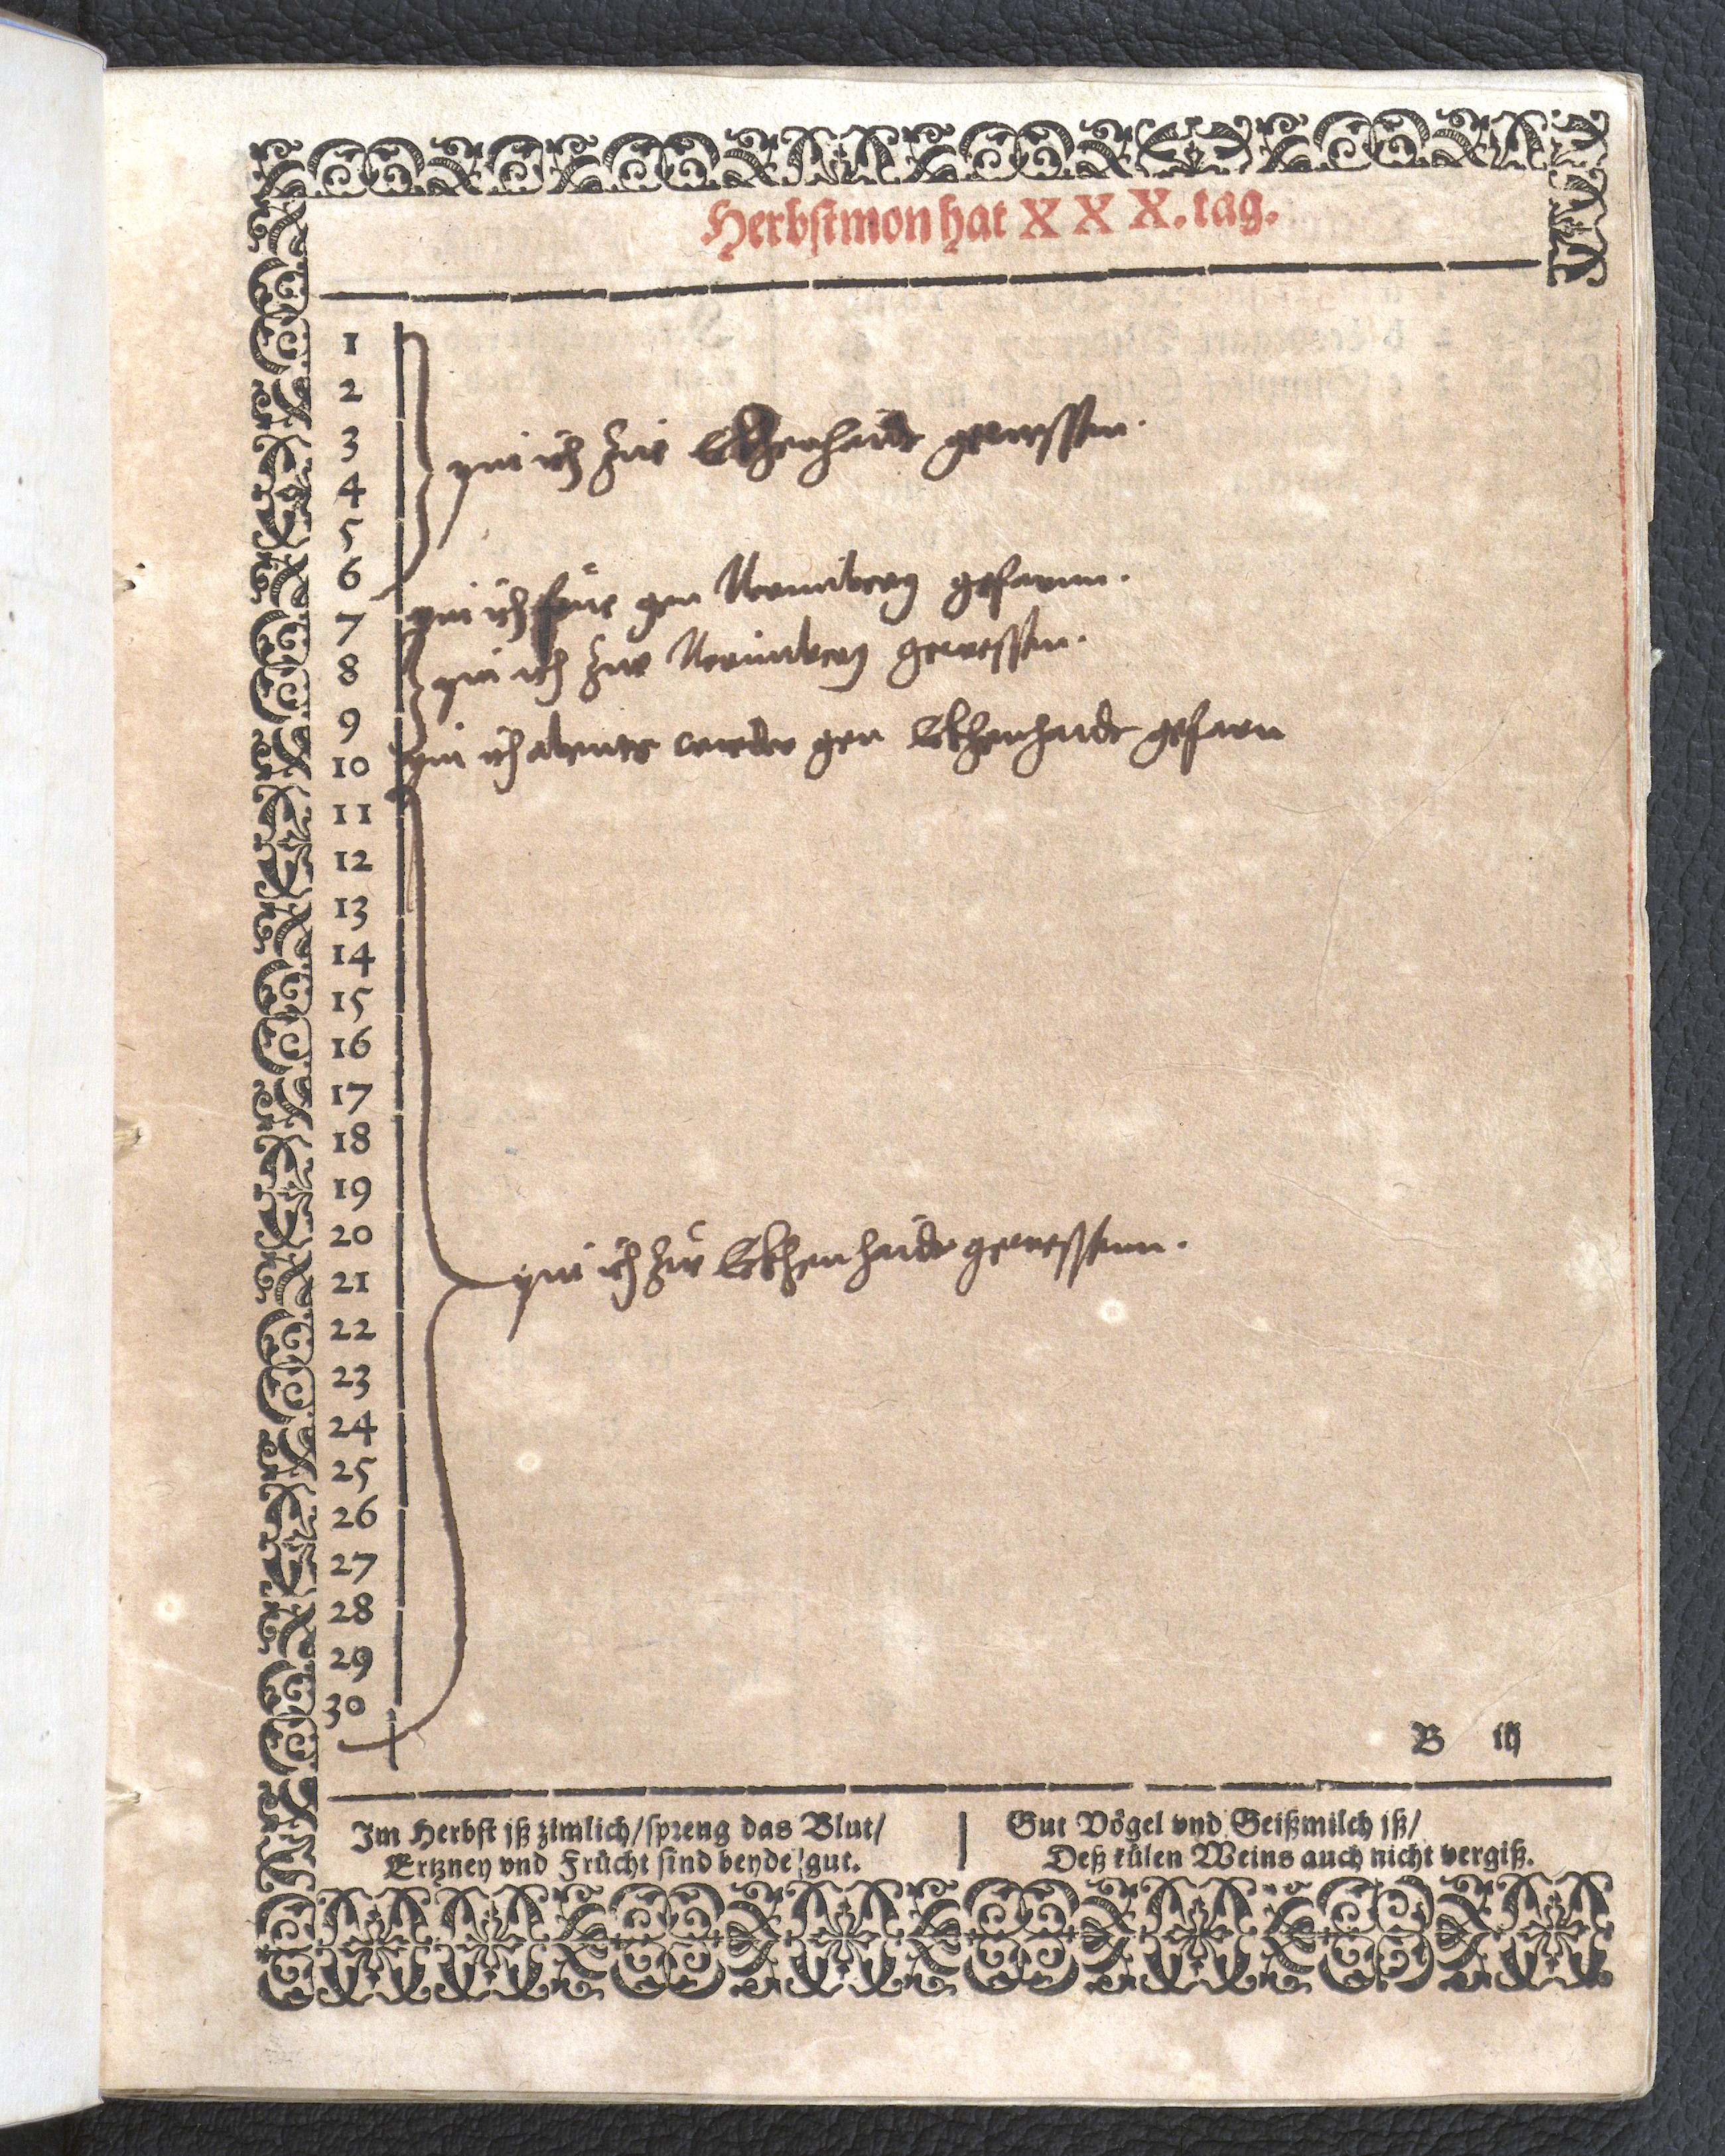 Herbstmon hat X X X. tag.
1
2
3
pin ich zue Eckhenhaide gewessen.
4
5
6
pin ich frue gen Nermberg gefarnn.
7
pin ich zue Nermberg gewessen.
8
9
pin ich abents wieder gen Eckhenhaidt gefarn
10
11
12
13
14
15
16
17
18
19
20
pin ich zue Eckhenhaidt gewessenn.
21
22
23
24
25
26
27
28
29
30
B iij
Im Herbst iß zimlich/spreng das Blut/
Ertzney vnd Frücht sind beyde gut.
Gut Vögel vnd Geißmilch iß/
Deß külen Weins auch nicht vergiß.